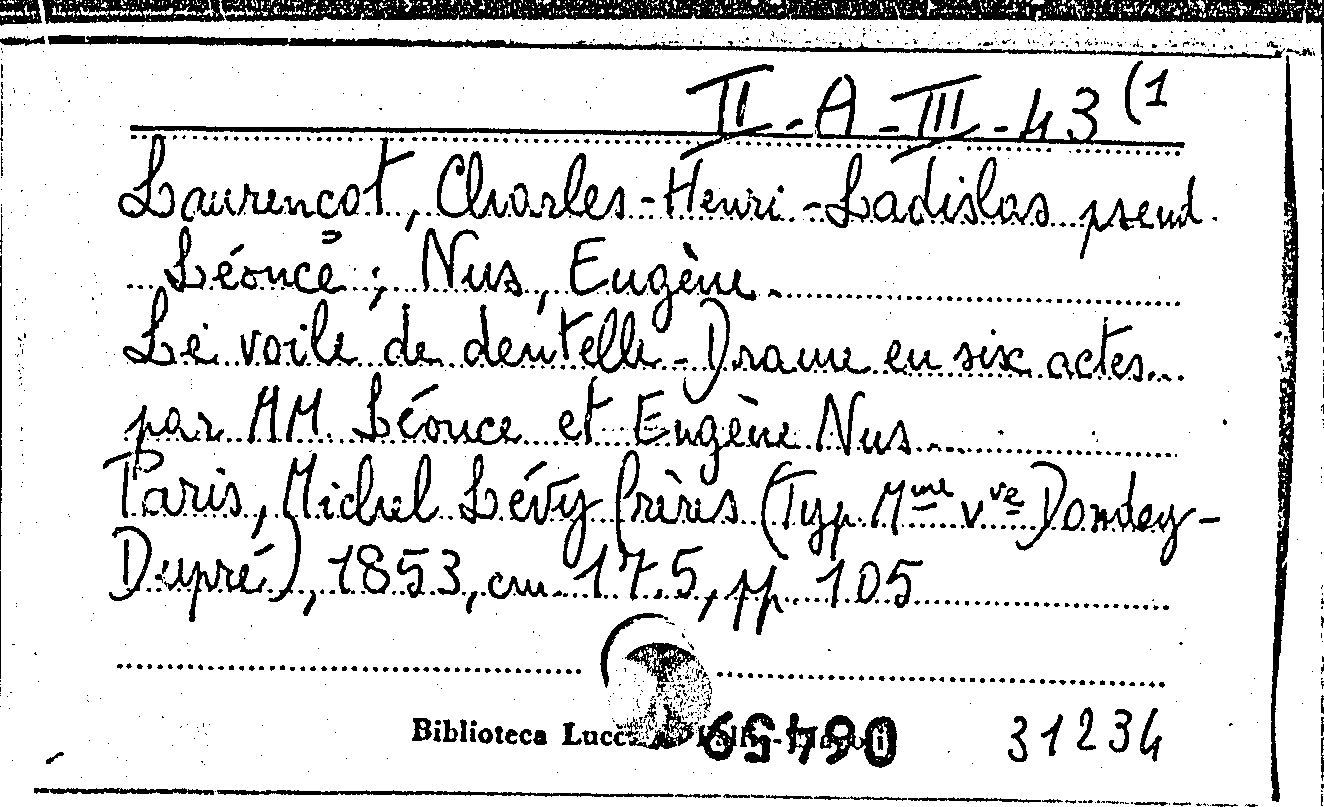 II-A-III-43 (1
Laurençot, Charles-Henri-Ladislas pseud.
Léonce; Nus, Eugène.
Le voile de dentelle - Drame en six actes
par MM. Léonce et Eugène Nus
Paris, Michel Lévy frères (Typ. Mme Vve Dondey-
Dupré), 1853, cm. 17.5, pp. 105
Biblioteca 31234